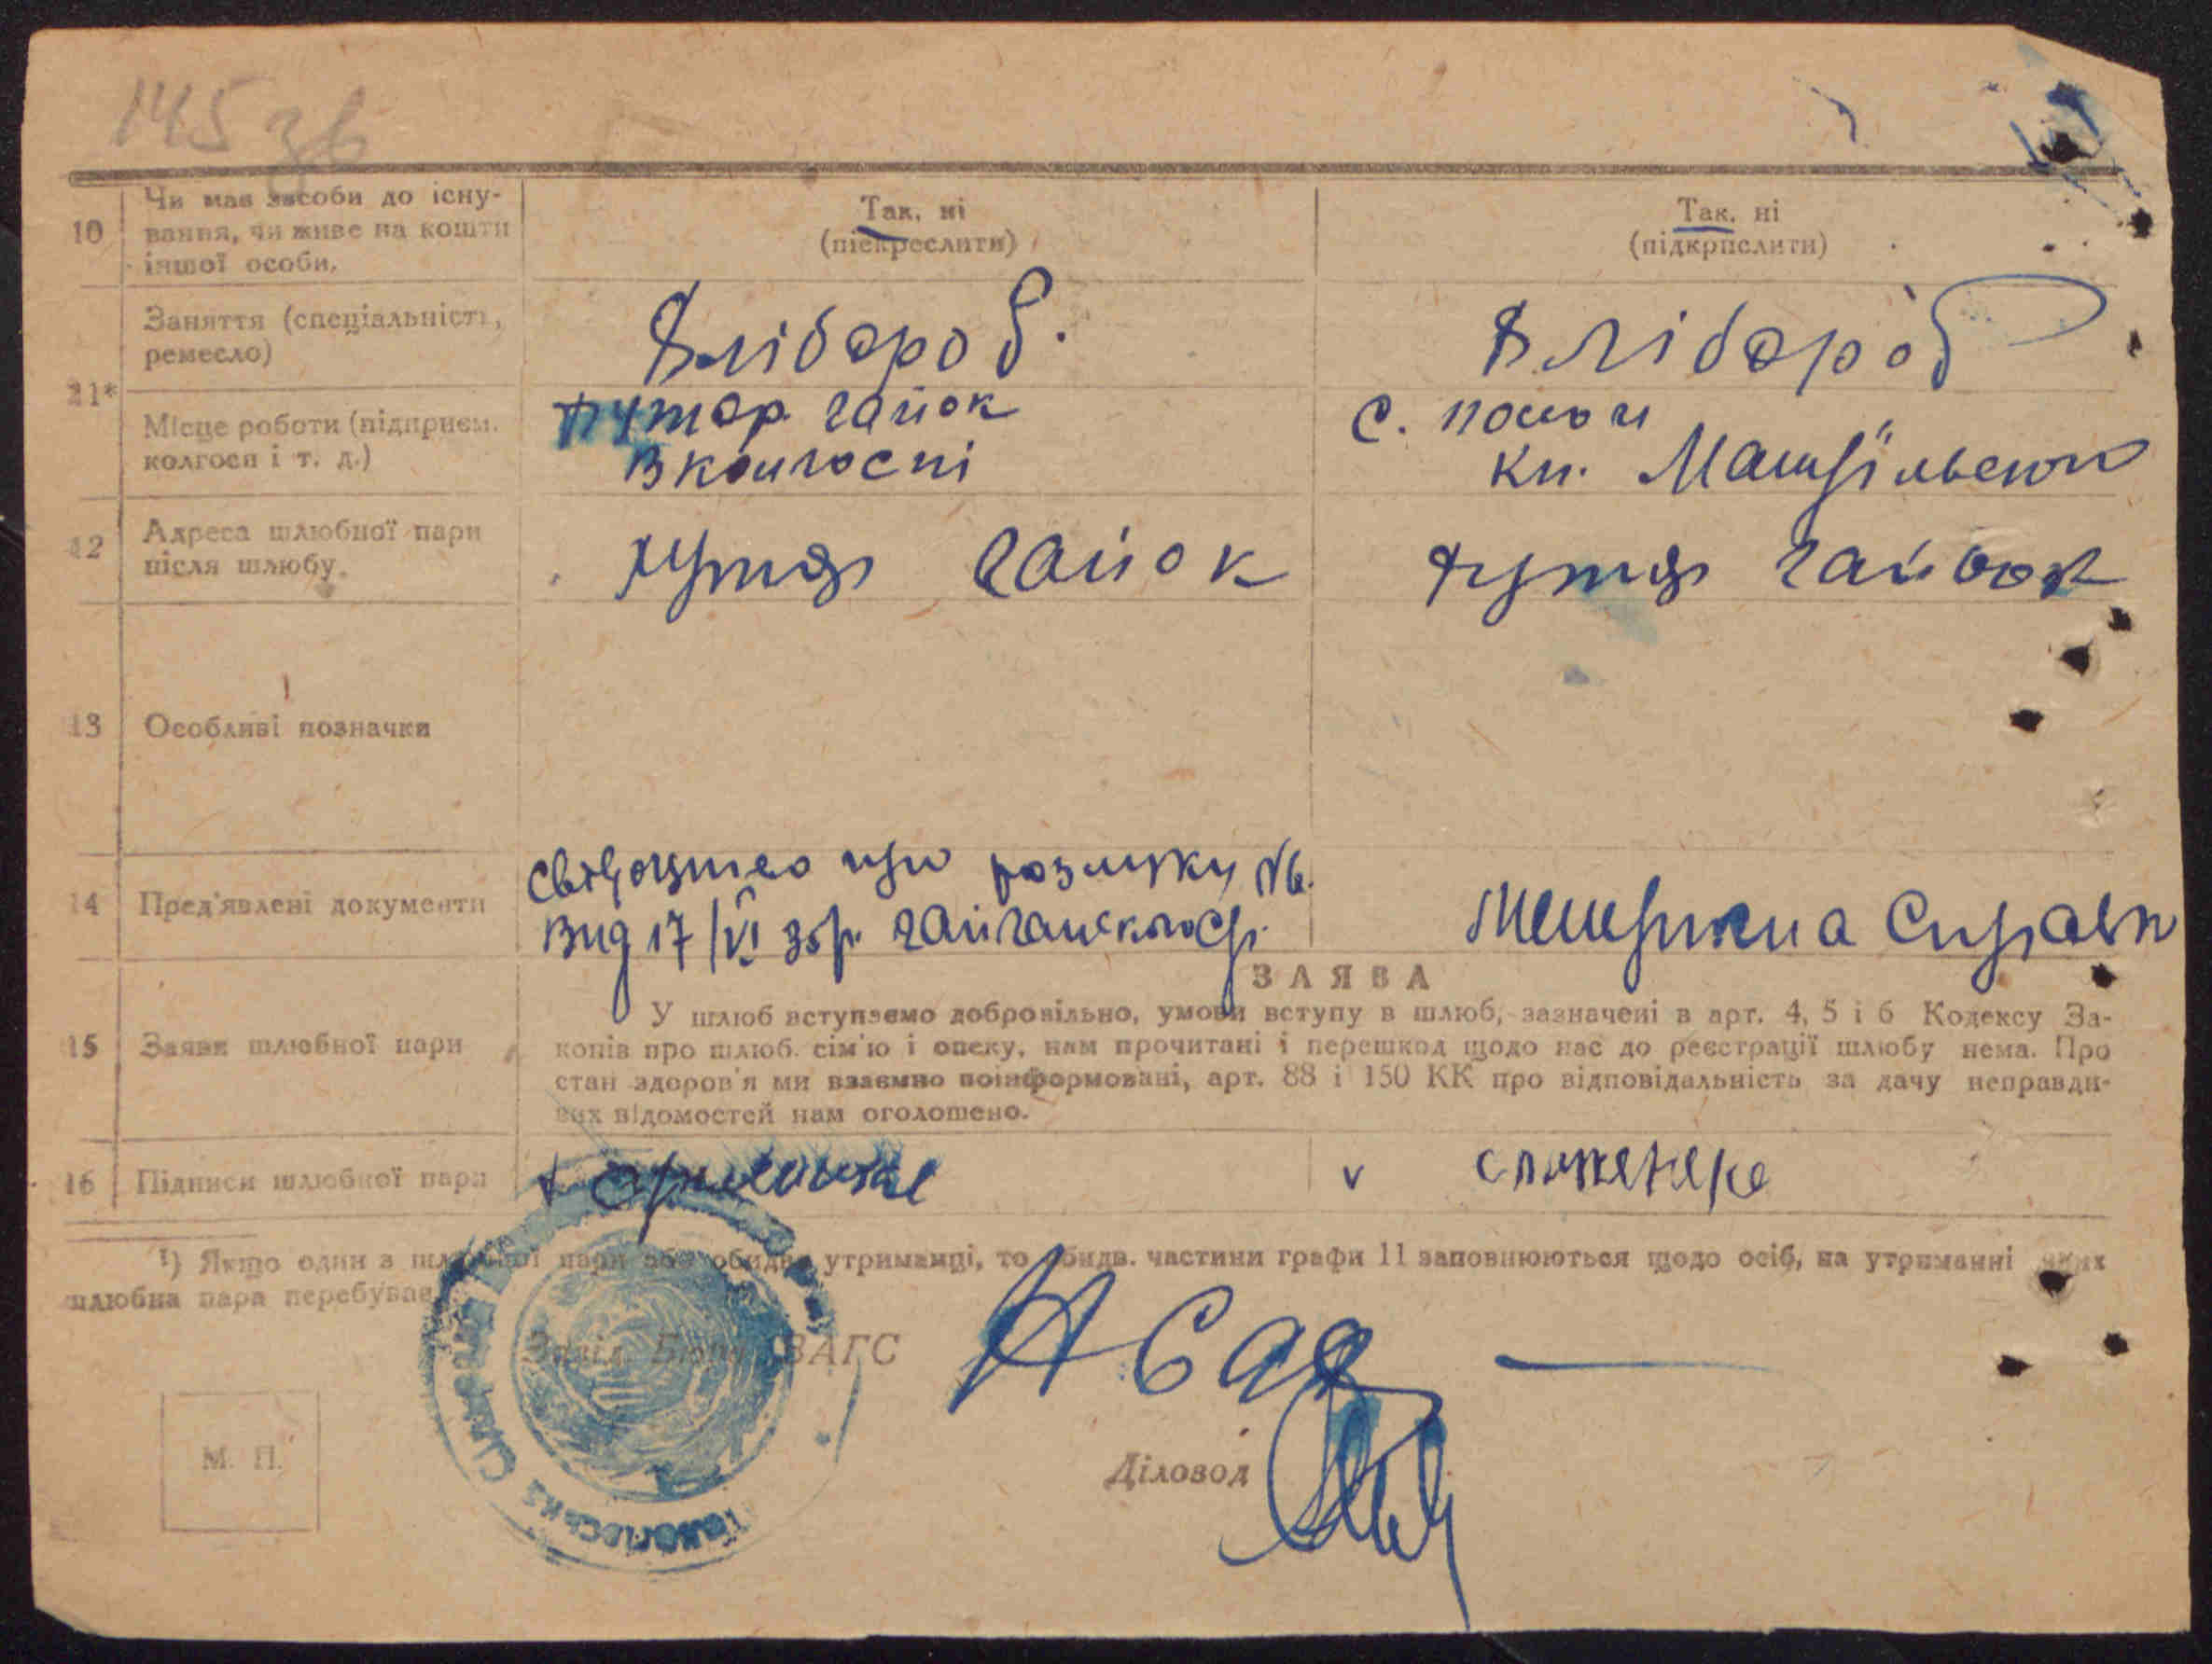 145 зв
10
Чи має засоби до існу-
вання, чи живе на кошти
іншої особи.
Так, ні
(підкреслити)
Так, ні
(підкрислити)
11*
Заняття (спеціальність,
ремесло)
Хлібороб.
Хлібороб
Місце роботи (підприєм.
колгосп і т. д.)
Хутор гайок
В колгоспі
с.
кл.
12
Адреса шлюбної пари
після шлюбу.
хутор гайок
хутор гайок
13
Особливі позначки
14
Пред'явлені документи
свідоцтво про розлуку №
вид 17/VI 35р.
Метрична Справк
15
Заява шлюбної пари
ЗАЯВА
У шлюб вступаємо добровільно, умови вступу в шлюб, зазначені в арт. 4, 5 і 6 Кодексу За-
конів про шлюб. сім'ю і опеку, нам прочитані і перешкод щодо нас до реєстрації шлюбу нема. Про
стан здоров'я ми взаємно поінформовані, арт. 88 і 150 КК про відповідальність за дачу неправди-
вих відомостей нам оголошено.
16
Підписи шлюбної пари
v
v
¹) Якщо один з шлюбної пари або обидва утриманці, то обидв. частини графи 11 заповнюються щодо осіб, на утриманні яких
шлюбна пара перебуває
Завід. Бюро ЗАГС
М. П.
Діловод